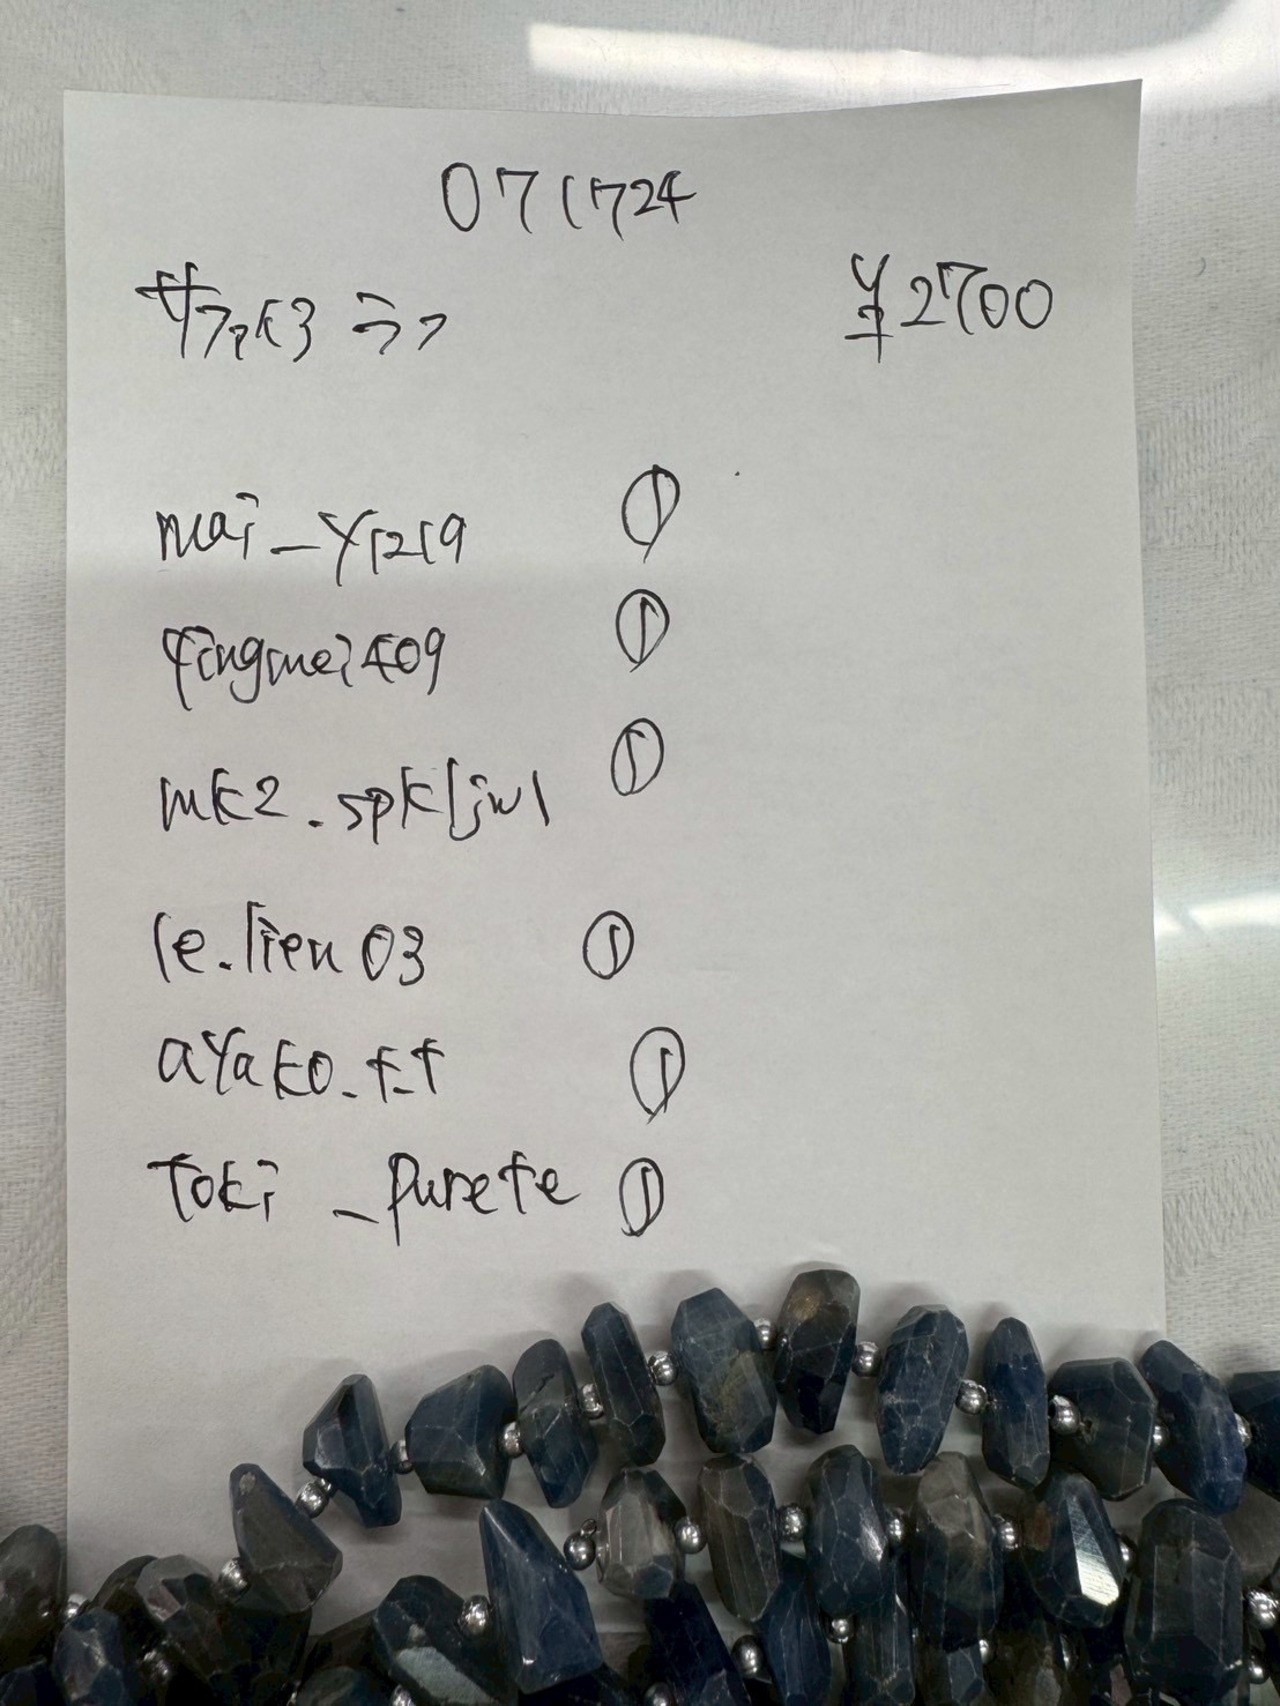 071724
サファイヤ ラフ ¥2700
mai_y1219 ①
qingmei409 ①
mk2.spkljwl ①
le.lien03 ①
ayako.t.t ①
Toki_purete ①